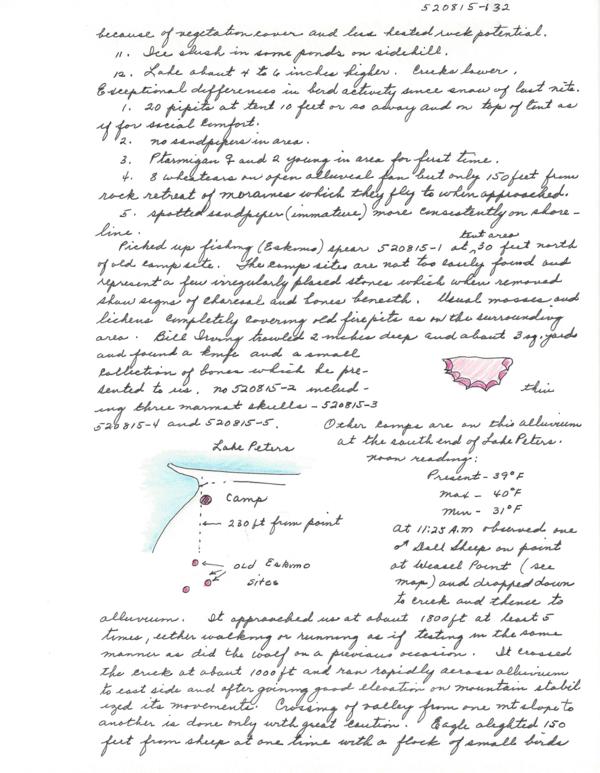 520815-132
because of vegetation cover and less heated rock potential.
11. Ice slush in some ponds on sidehill.
12. Lake about 4 to 6 inches higher. Creeks lower.
Exceptional differences in bird activity since snow of last nite.
1. 20 pipits at tent 10 feet or so away and on top of tent as
if for social comfort.
2. no sandpipers in area.
3. Ptarmigan ♀ and 2 young in area for first time.
4. 8 wheatears on open alluvial fan but only 150 feet from
rock retreat of moraines which they fly to when approached.
5. spotted sandpiper (immature) more consistently on shore-
line.
Picked up fishing (Eskimo) spear 520815-1 at tent area, 30 feet north
of old camp site. The camp sites are not too easily found and
represent a few irregularly placed stones which when removed
show signs of charcoal and bones beneath. Usual mosses and
lichens completely covering old firepits as on the surrounding
area. Bill Irving troweled 2 inches deep and about 3 sq. yards
and found a knife and a small
collection of bones which he pre-
sented to us. no 520815-2 includ-
ing three marmot skulls - 520815-3
520815-4 and 520815-5.
this
Other camps are on this alluvium
at the south end of Lake Peters.
Lake Peters
Camp
230 ft from point
old Eskimo
sites
noon reading:
Present - 39°F
max - 40°F
min - 31°F
At 11:25 A.M observed one
♂ Dall Sheep on point
at Weasel Point (see
map) and dropped down
to creek and thence to
alluvium. It approached us at about 1800 ft at least 5
times, either walking or running as if testing in the same
manner as did the wolf on a previous occasion. It crossed
the creek at about 1000 ft and ran rapidly across alluvium
to east side and after gaining good elevation on mountain stabil
ized its movements. Crossing of valley from one mt slope to
another is done only with great caution. Eagle alighted 150
feet from sheep at one time with a flock of small birds